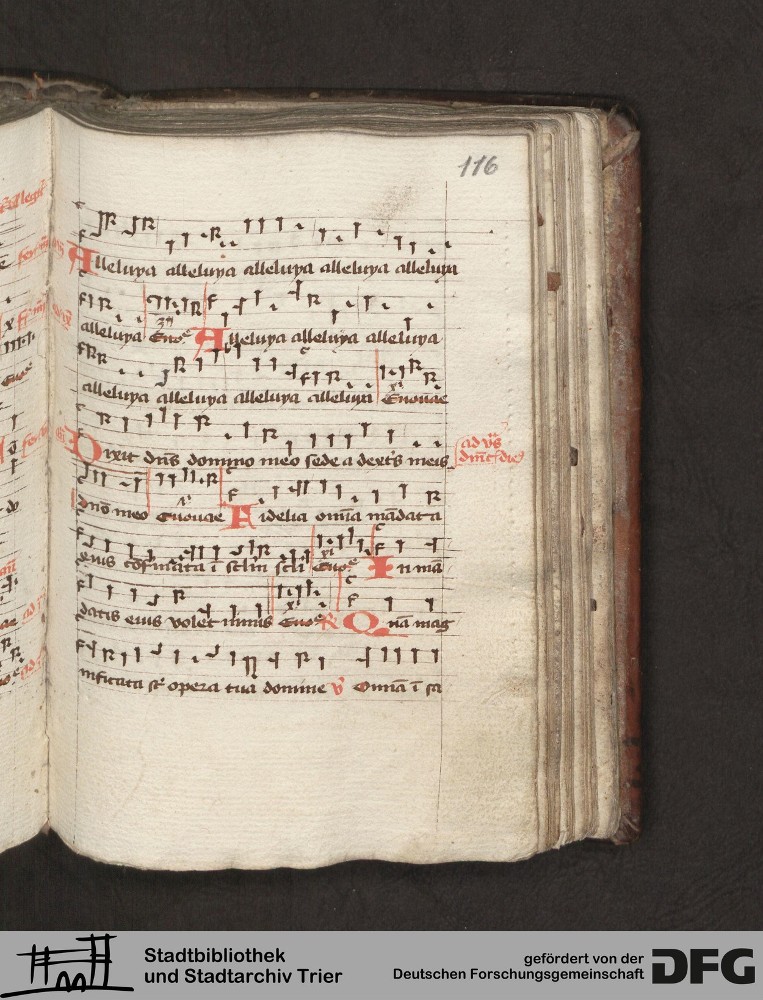 116
Alleluya alleluya alleluya alleluya alleluya
alleluya Euoe Alleluya alleluya alleluya
alleluya alleluya alleluya alleluya Euouae
Dixit dns domino meo sede a dextˀs meis
ad vs
dno meo Euouae Fidelia omīa mādata
eius cōfirmata ī sclm scli Euoe In mā
datis eius volet nimis Euoe R Qnā mag
nificata st opera tua domine v Omīa ī sa
Stadtbibliothek
und Stadtarchiv Trier
gefördert von der
Deutschen Forschungsgemeinschaft
DFG